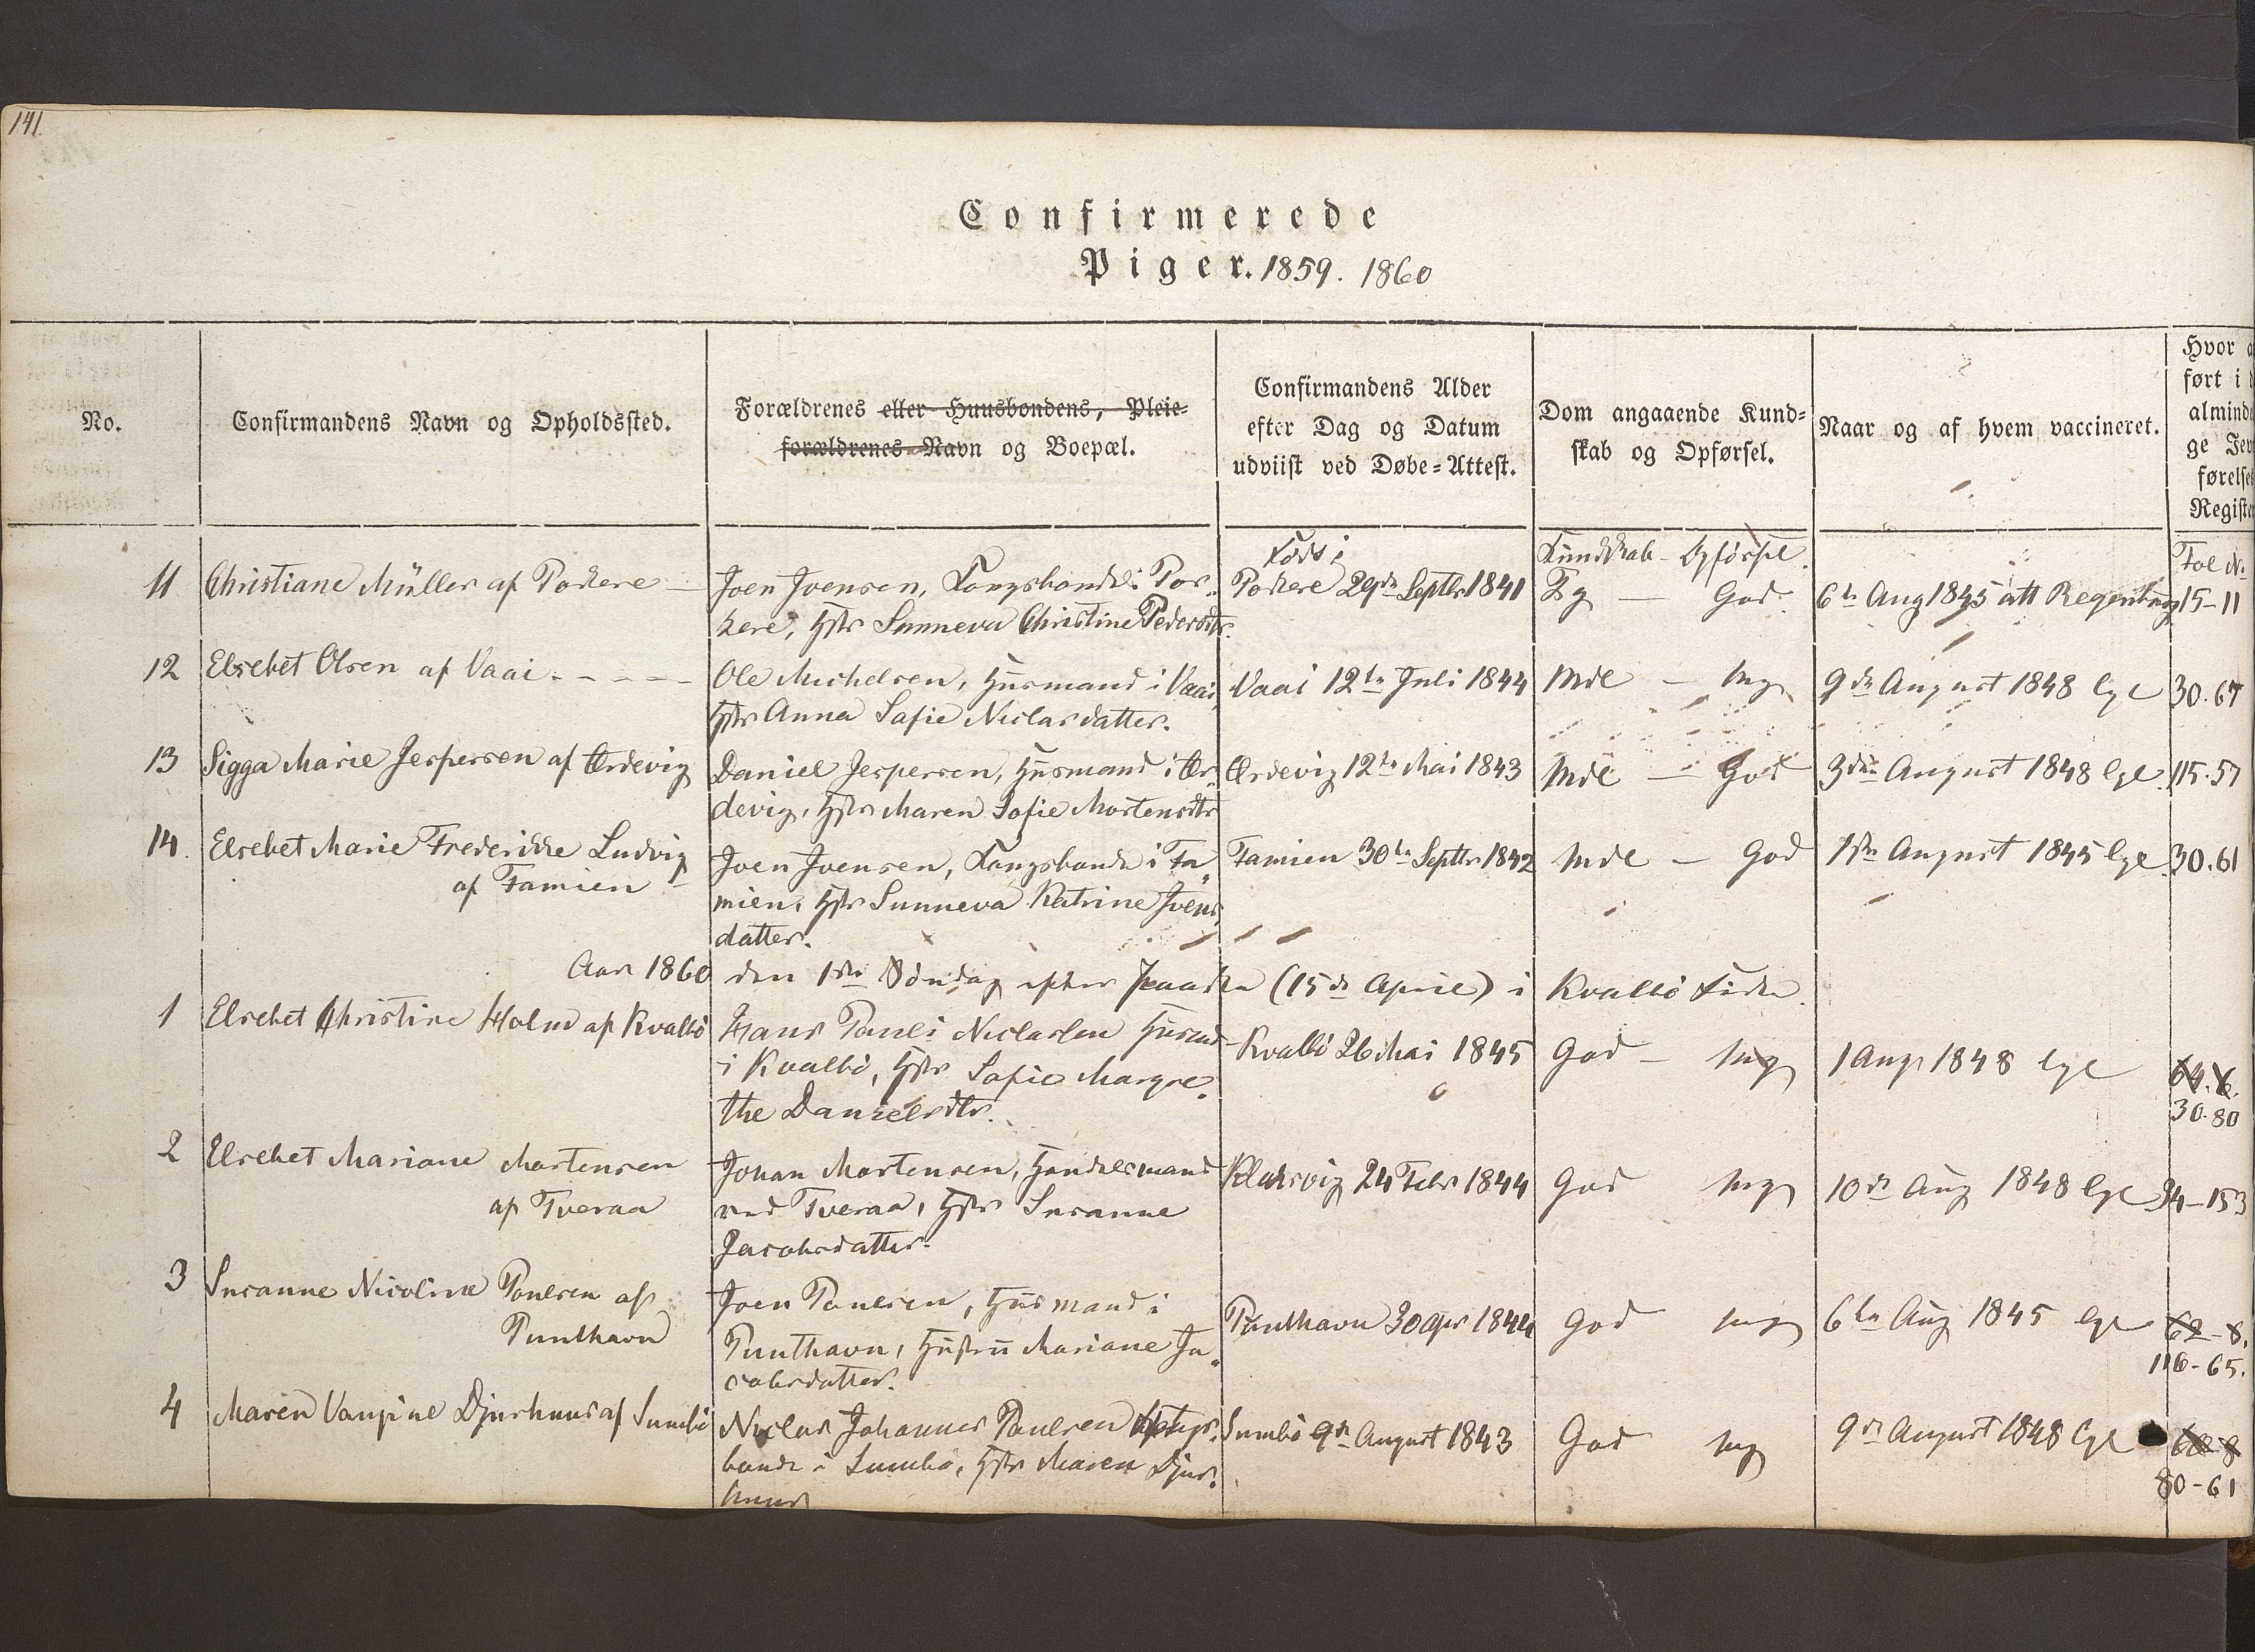 141.
Confirmerede
Piger. 1859. 1860
No.
Confirmandens Navn og Opholdssted.
Forældrenes eller Huusbondens, Pleie=
forældrenes Navn og Boepæl.
Confirmandens Alder
efter Dag og Datum
udviist ved Døbe=Attest.
Dom angaaende Kund=
skab og Opførsel.
Naar og af hvem vaccineret.
Hvor
ført i
almind
ge
førelse
Register
Født i
Kundskab - Opførsel.
Fol No
11 Christiane Müller af Porkere
Joen Joensen, Kongsbonde i Por„
kere, Hstr Sunneva Christine Pedersdtr.
Porkere 29de Septbr 1841
Tg — God.
6te Aug 1845 att Regenburg
15-11
12 Elsebet Olsen af Vaai - - - -
Ole Michelsen, Huusmand i Vaai,
Hstr Anna Sofie Niclasdatter.
Vaai 12te Juli 1844
Mdl — mg
9de August 1848 lgl
30.67
13 Sigga Marie Jespersen af Ørdevig
Daniel Jespersen, Huusmand i Ør„
devig, Hstr Maren Sofie Mortensdtr
Ørdevig 12te Mai 1843
Mdl — God
3die August 1848 lgl.
115.57
14. Elsebet Marie Frederikke Ludvig
af Famien -
Joen Joensen, Kongsbonde i Fa„
mien, Hstr Sunneva Katrine Joens
datter.
Famien 30te Septbr 1842
mdl — God
1ste August 1845 lgl.
30.61
Aar 1860 den 1ste Søndag efter Paaske (15de April) i Kvalbø Kirke.
1 Elsebet Christine Holm af Kvalbø
Hans Pauli Niclasen Husmd
i Kvalbø, Hstr Sofie Margre„
the Danielsdtr.
Kvalbø 26 Mai 1845
God — mg
1 Aug 1848 lgl
64.6.
30.80
2 Elsebet Mariane Mortensen
af Tveraa
Johan Mortensen, Handelsmand
ved Tveraa, Hstr Susanne
Jacobsdatter.
Klaksvig 24 Febr 1844
God mg
10de Aug 1848 lgl
34-153
3 Susanne Nicoline Poulsen af
Punthavn
Joen Poulsen, Huusmand i
Punthavn, Hustru Mariane Ja„
cobsdatter.
Punthavn 30 Apr 1844
God mg
6te Aug 1845 lgl
62-8.
116-65.
4 Maren Djurhuus af Sumbø
Niclas Johannes Poulsen
bonde i Sumbø, Hstr Maren Djur„
huus
Sumbø 9de August 1843
God mg
9de August 1848 lgl
80-61